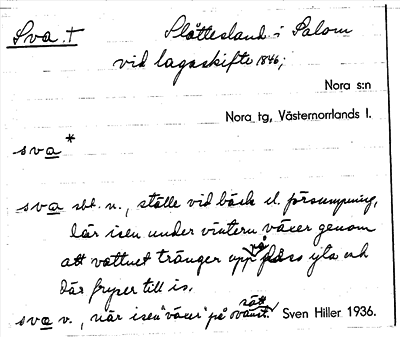 Sva. † Slåttesland i Salom
vid lagaskifte 1846;
Nora s:n
Nora tg, Västernorrlands l.
sva*
sva sbt. n., ställe vid bäck el. försumpning,
där isen under vintern växer genom
att vattnet tränger upp på dess yta och
där fryser till is.
sva v., när isen "växer" på ovänst. sätt Sven Hiller 1936.